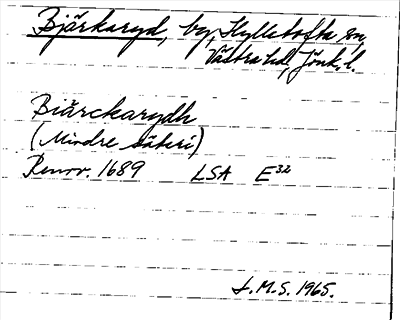 Bjärkaryd, by, Hylletofta sn,
Västra hd, Jönk. l.
Biärckarydh
(Mindre säteri)
Renov. 1689 LSA E32
J.M.S. 1965.